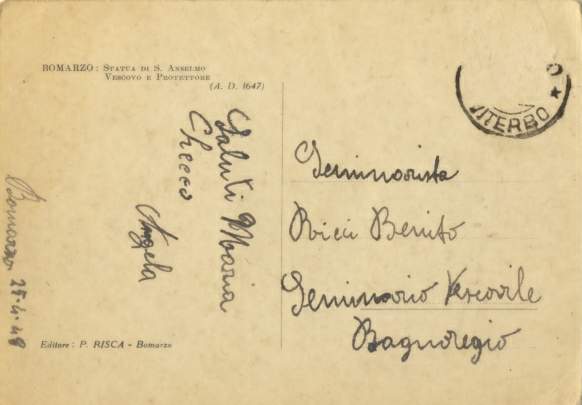 BOMARZO: STATUA DI S. ANSELMO
VESCOVO E PROTETTORE
(A. D. 1647)
VITERBO ★
Saluti Maria
Checco
Angela
Seminarista
Ricci Benito
Seminario Vescovile
Bagnoregio
Bomarzo 25-4-48
Editore: P. RISCA - Bomarzo